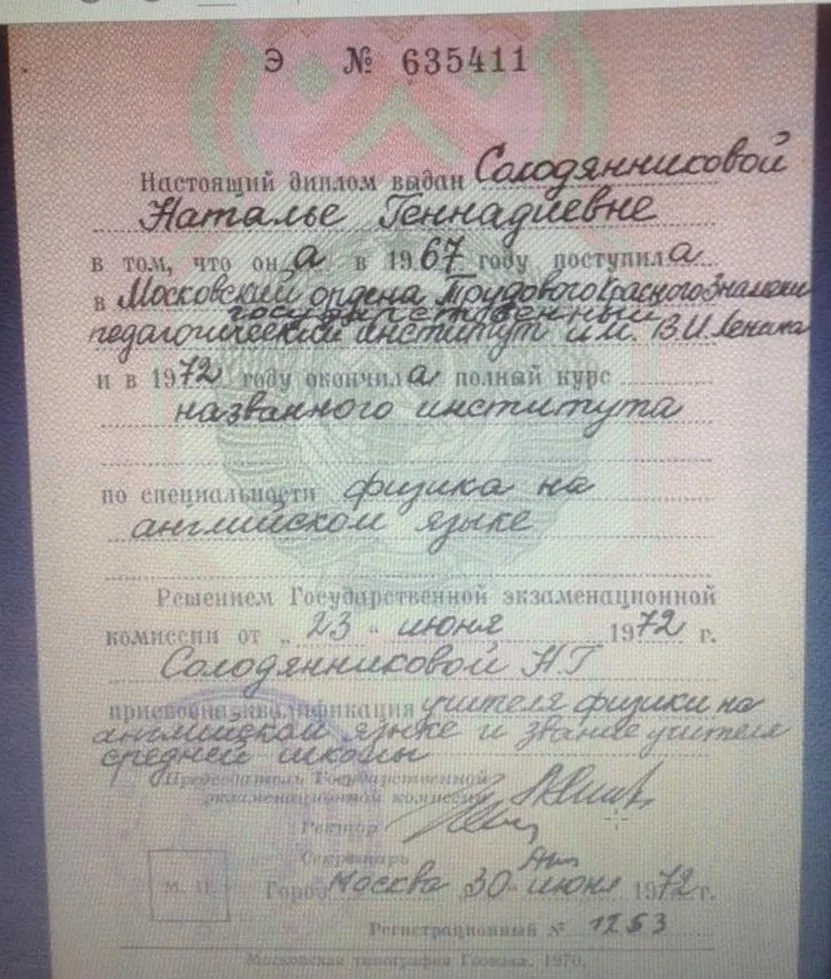 Э № 635411
Настоящий диплом выдан Солодянниковой
Наталье Геннадиевне
в том, что она в 1967 году поступила
в Московский ордена Трудового Красного Знамени
государственный
педагогический институт им. В.И. Ленина
и в 1972 году окончила полный курс
названного института
по специальности физика на
английском языке
Решением Государственной экзаменационной
комиссии от „23" июня 1972 г.
Солодянниковой Н.Г
присвоена квалификация учителя физики на
английском языке и звание учителя
средней школы
Председатель Государственной
экзаменационной комиссии
Ректор
Секретарь
М. П.
Город Москва 30 июня 1972 г.
Регистрационный № 1253
Московская типография Гознака. 1970.